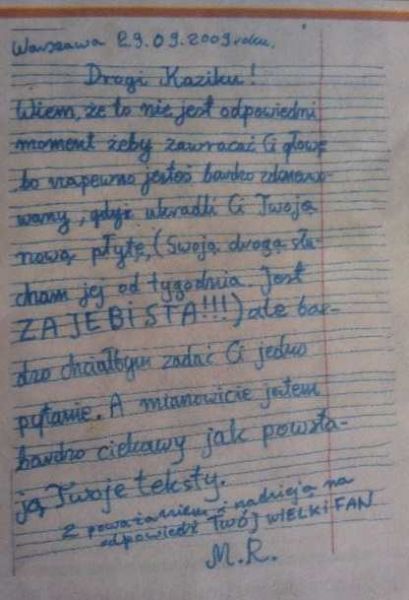 Warszawa 29.09.2009 roku.
Drogi Kaziku!
Wiem, że to nie jest odpowiedni
moment żeby zawracać Ci głowę
bo zapewno jesteś bardzo zdener-
wowany, gdyż ukradli Ci Twoją
nową płytę, (Swoją drogą słu-
cham jej od tygodnia. Jest
ZAJEBISTA!!!) ale bar-
dzo chciałbym zadać Ci jedno
pytanie. A mianowicie jestem
bardzo ciekawy jak powsta-
ją Twoje teksty.
Z poważaniem i nadzieją na
odpowiedź TWÓJ WIELKI FAN
M.R.